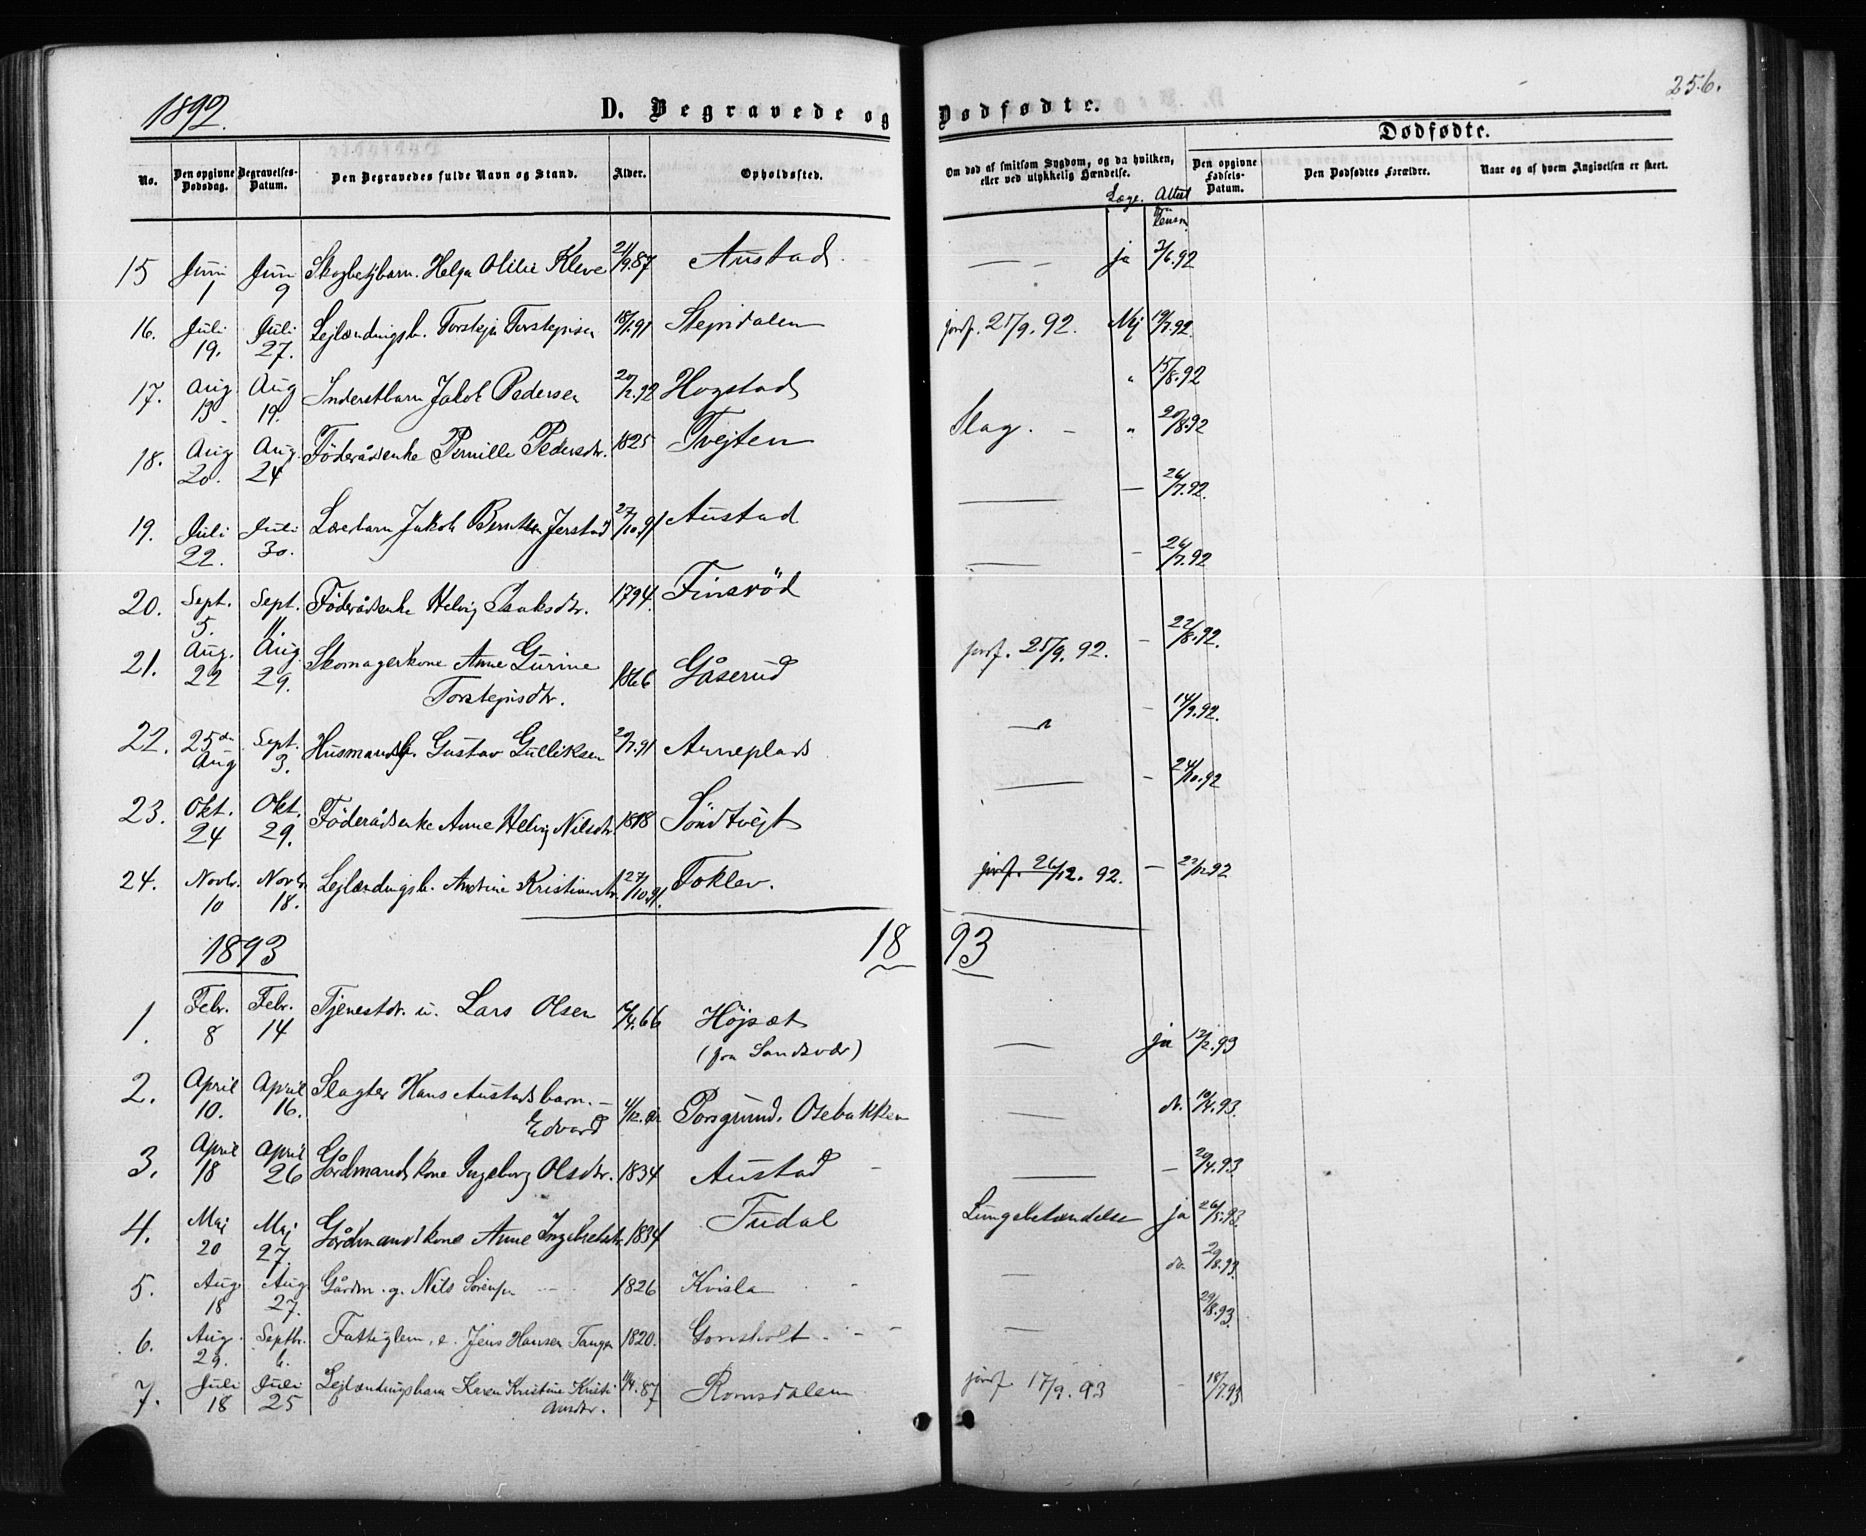 1892.
D. Begravede og Dødfødte.
256.
No.
Den opgivne Dødsdag.
Begravelses-Datum.
Den Begravedes fulde Navn og Stand.
Alder.
Opholdssted.
Om død af smitsom Sygdom, og da hvilken, eller ved ulykkelig Hændelse.
Læge. Attest
Dødfødte.
Den opgivne Fødsels-Datum.
Den Dødfødtes Forældre.
Naar og af hvem Angivelsen er skeet.
15 Juni 1 Juni 9 Helga Olilie Kleve 21/9.87 Austad ja 3/6.92
16. Juli 19. Juli 27. Lejlændingsb. Torstejn Torstejnsen 18/1.91 Stejnsdalen jordf. 25/9. 92. Nej 19/7.92.
17. Aug 13 Aug 19. Inderstbarn Jakob Pedersen 20/2.92 Hogstad " 15/8.92
18. Aug 20. Aug. 24 Föderådsenke Pernille Pedersdtr. 1825 Tvejten Slag. — " 20/8.92
19. Juli 22. Juli 30. Jakob Berntsen Jerstad 27/10.91 Austad — 26/7.92.
20. Sept. 5. Sept. 11. Föderådsenke Helvig Isaksdtr. 1794. Finsröd — 26/7.92
21. Aug. 22 Aug 29. Skomagerkone Anne Gurine
Torstejnsdtr. 1866 Gåserud jordf. 25/9. 92. — 22/8.92.
22. 25de Aug Sept. 3. Husmandsb. Gustav Gulliksen 2/7.91 Anneplads — 14/9.92.
23. Okt. 24 Okt. 29. Föderådsenke Anne Helvig Nilsdtr. 1818 Söndtvejt — 24/10.92
24. Novbr. 10 Novbr. 18. Lejlændingsb. Kristiansdtr. 27/10.91. Toklev. jordf. 26/12. 92. — 22/12.92
1893
18 93
1. Febr. 8 Febr. 14 Tjenestdr. u. Lars Olsen 66 Höjsæt
(fra Sandsvær) ja 13/2.93
2. April 10. April 16. Slagter Hans Austads barn. —
Edvard Porsgrund. Osebakken do. 10/4.93.
3. April 18 April 26 Gårdmandskone Ingeborg Olsdtr. 1834 Austad — 20/4.93
4. Maj 20 Maj 27. Gårdmandskone Anne Ingebretsdtr. 1834 Tudal Lungebetændelse ja 26/5.93.
5. Aug 18 Aug 27. Gårdm. g. Nils Sörensen 1826 Kvisla do. 20/8.93.
6. Aug. 29. Septbr. 6. Fattiglem. e. Jens Hansen Tangen 1820. Gonsholt 29/8.93.
7. Juli 18 Juli 25 Lejlændingsbarn Karen Kristine Kristi-
ansdtr. 87 Romsdalen jordf. 17/9.93 — 18/7.93